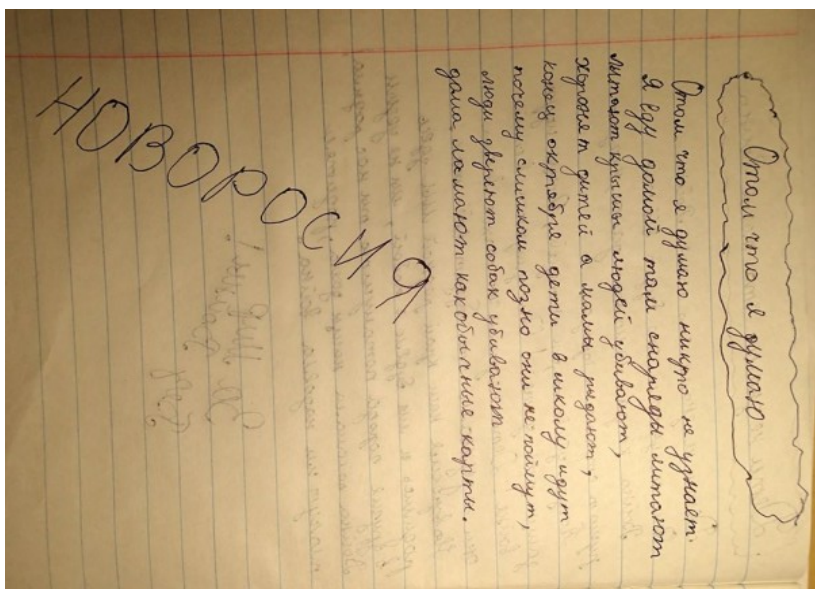 Отом что я думаю
Отом что я думаю никто не узнает.
Я еду домой там снаряды литают
литают крысы людей убивают,
хоронят дитей а мамы рыдают,
конец октября дети в школу идут
почему слишком позно они не поймут,
люди звереют собак убивают
дама ламают как обычные карты.
НОВОРОСИЯ